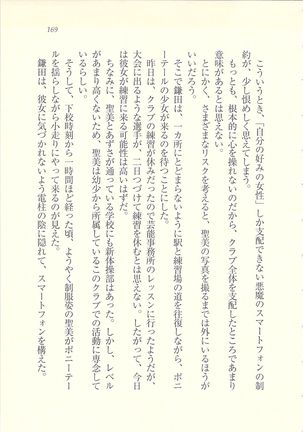 169
こういうとき、「自分の好みの女性」しか支配できない悪魔のスマートフォンの制
約が、少し恨めしく思えてしまう。
もっとも、根本的に心を操れないのだから、クラブ全体を支配したところであまり
意味があるとは思えない。
とにかく、さまざまなリスクを考えると、聖美の写真を撮るまでは外にいるほうが
いいだろう。
そこで鎌田は、一カ所にとどまらないように駅と練習場の道を往復しながら、ポニ
ーテールの少女が来るのを待つことにした。
昨日は、クラブの練習が休みだったので芸能事務所のレッスンに行ったようだが、
大会に出るような選手が、二日つづけて練習を休むとは思えない。したがって、今日
は彼女が練習に来る可能性は高いはずだ。
ちなみに、聖美とあずさが通っている学校にも新体操部はあった。しかし、レベル
があまり高くないため、聖美は幼少から所属しているこのクラブでの活動に専念して
いるらしい。
そうして、下校時刻から一時間ほど経った頃、ようやく制服姿の聖美がポニーテー
ルを揺らしながら小走りにやって来るのが見えた。
鎌田は、彼女に気づかれないよう電柱の陰に隠れて、スマートフォンを構えた。